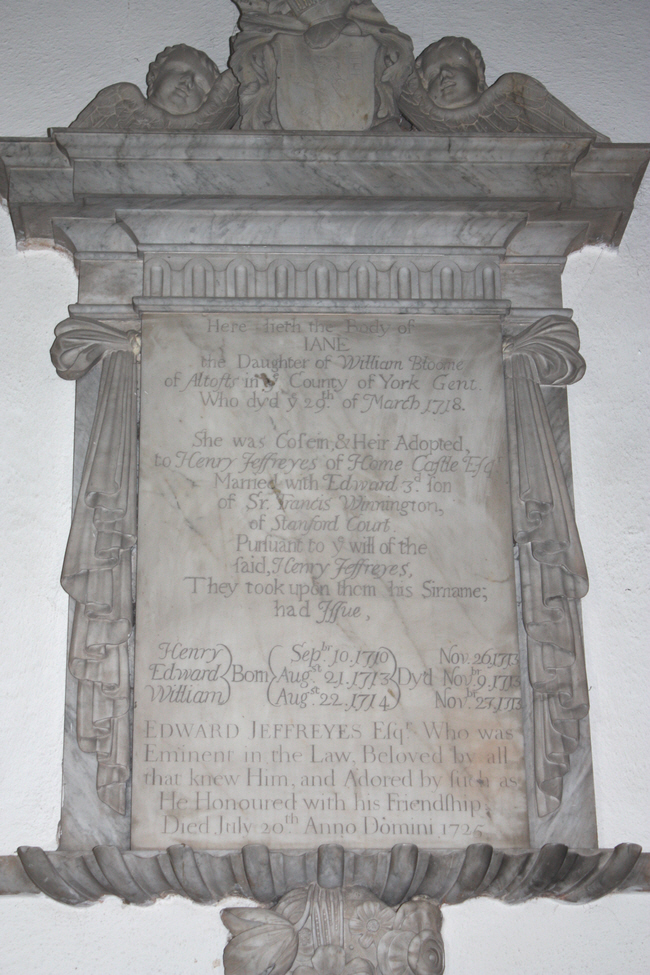 Here lieth the Body of
IANE
the Daughter of William Bloome
of Altofts in yͤ County of York Gent.
Who dyd yͤ 29.th of March 1718.
She was Coſein, & Heir Adopted,
to Henry Jeffreyes of Home Caſtle Eſqr
Married with Edward 3.d ſon
of Sr. Francis Winnington,
of Stanford Court.
Purſuant to yͤ will of the
ſaid, Henry Jeffreyes,
They took upon them his Sirname;
had Iſſue,
Henry Sepbr. 10. 1710 Nov. 26. 1713
Edward Born Augst. 21. 1713 Dyd Novbr. 9. 1713
William Augst. 22. 1714 Novbr. 27.
EDWARD JEFFREYES Eſqr. Who was
Eminent in the Law, Beloved by all
that knew Him, and Adored by ſuch as
He Honoured with his Friendſhip,
Died July 20.th Anno Domini 1725